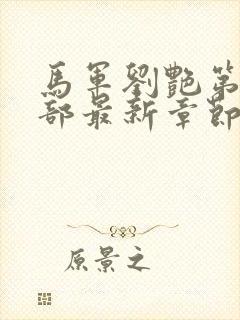 馬軍劉艷第
部最新章節
原景之